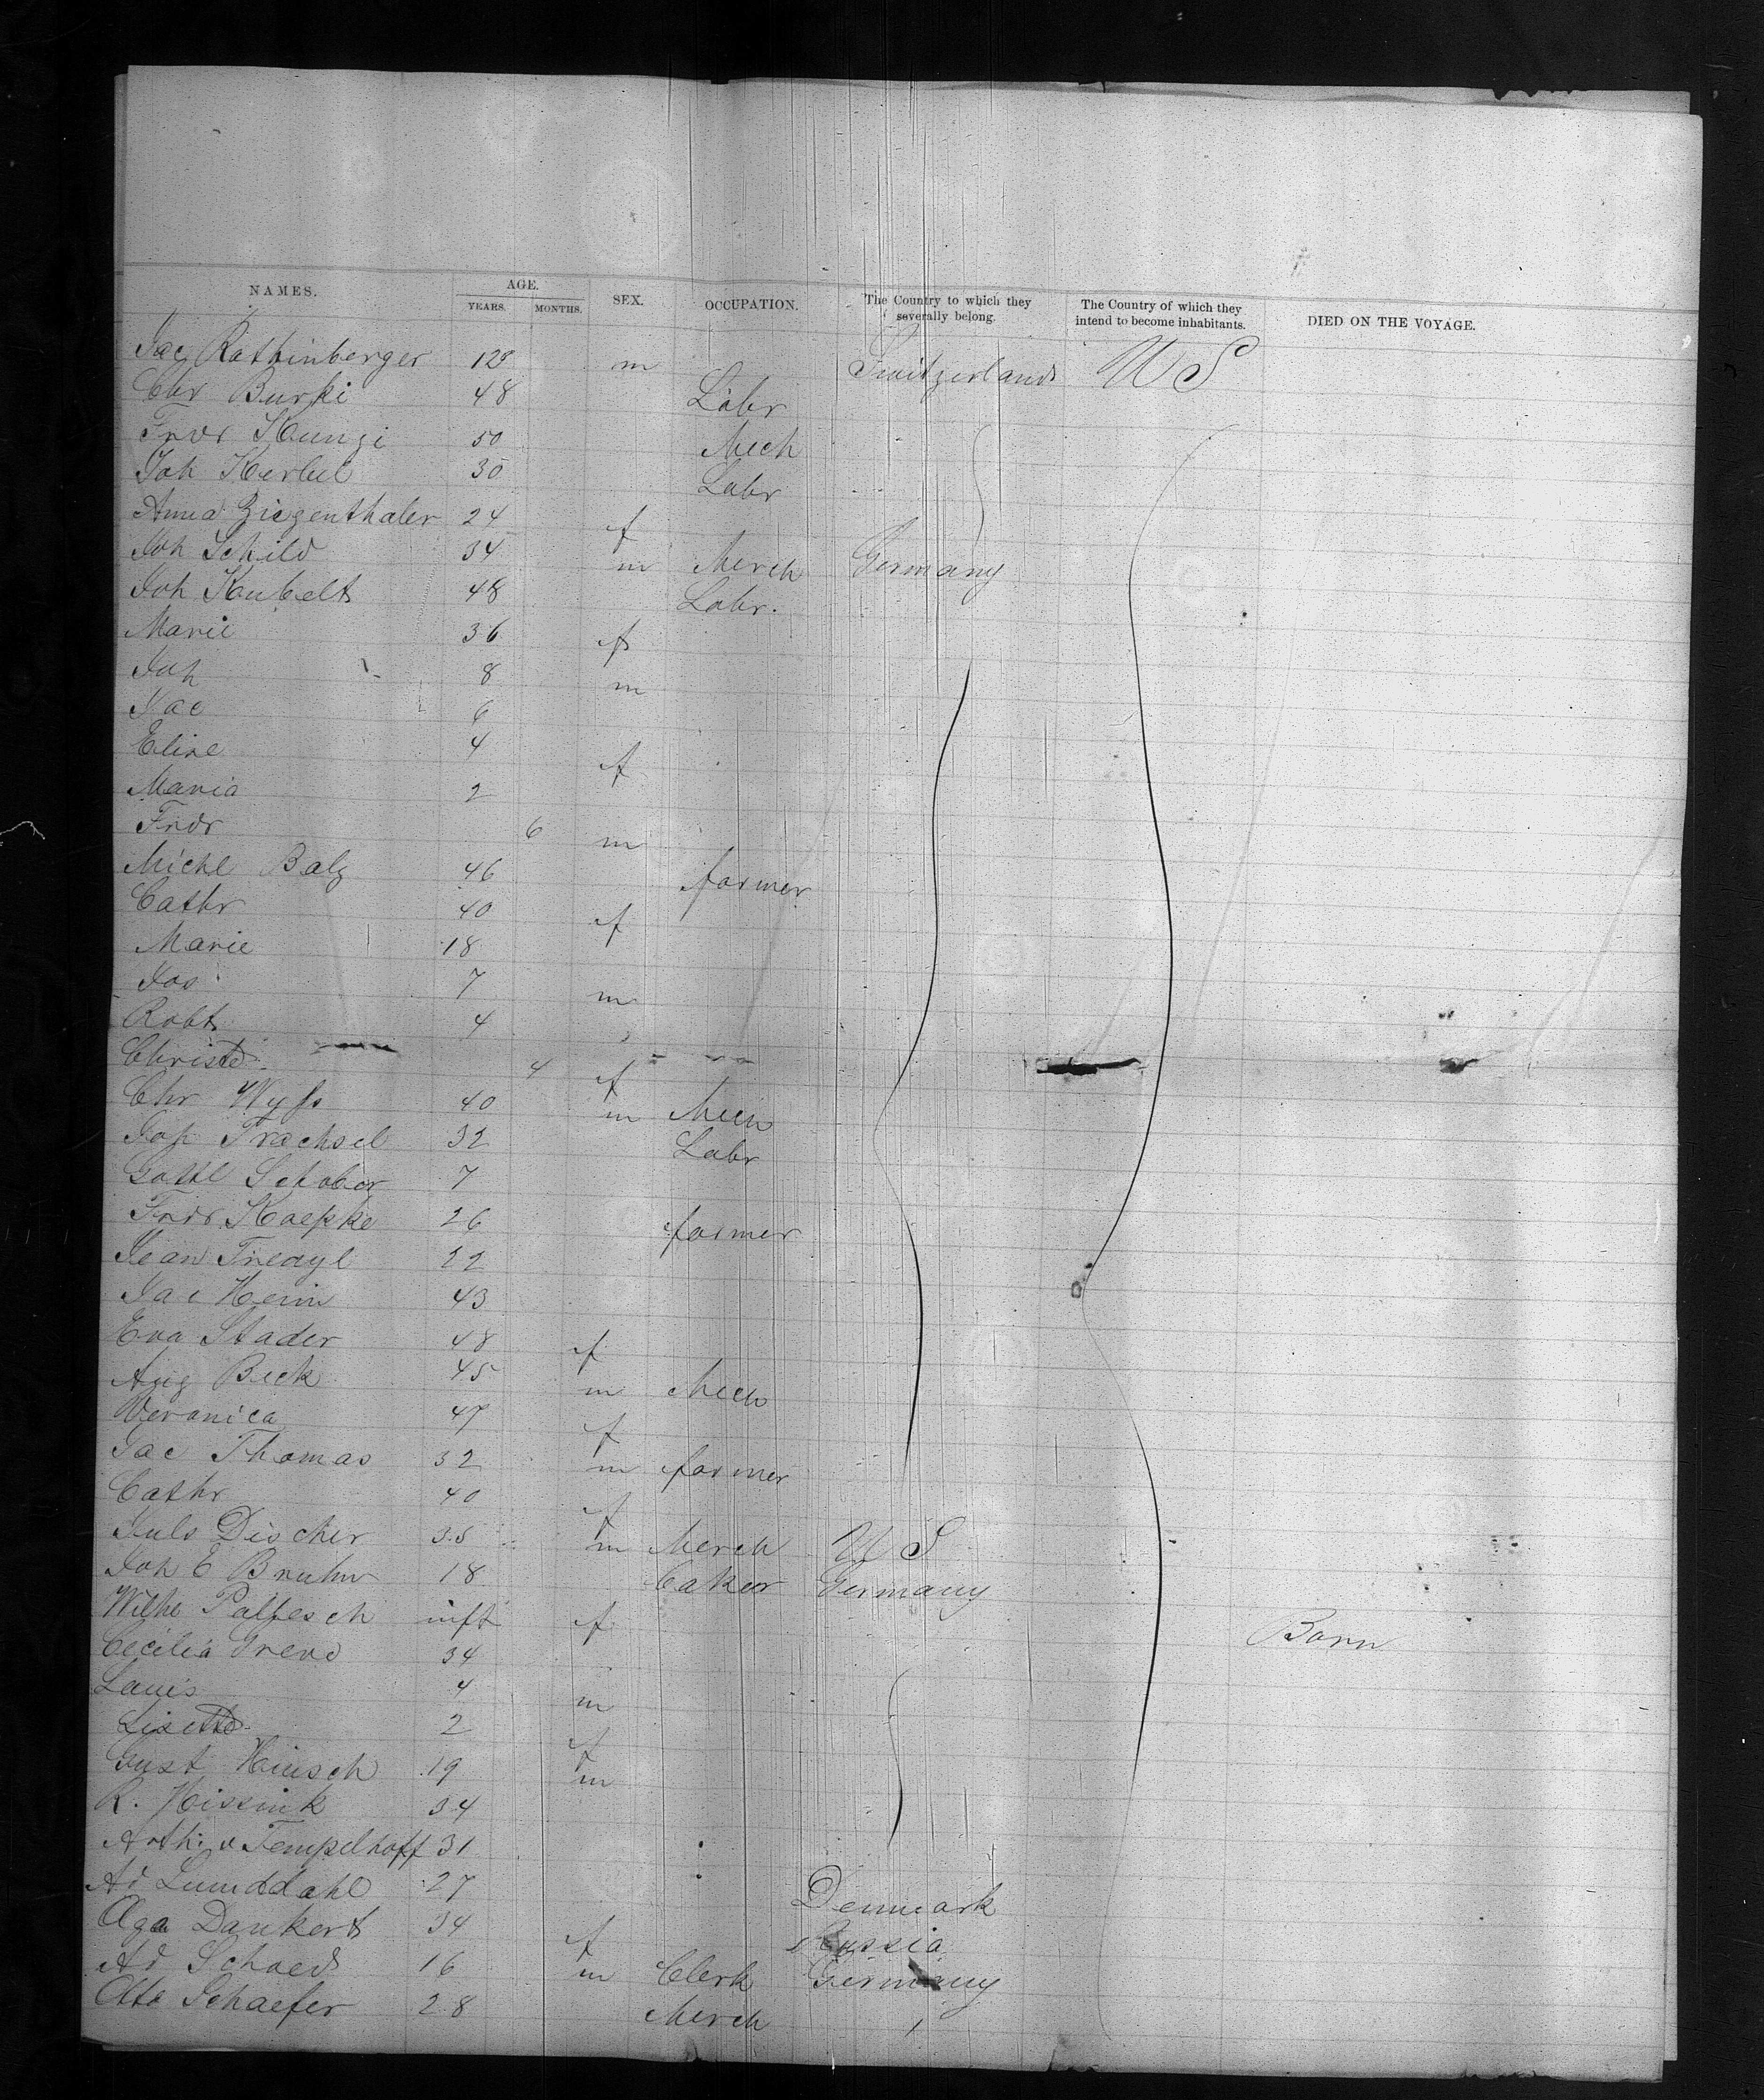 NAMES. AGE. SEX. OCCUPATION. The Country to which they severally belong. The Country of which they intend to become inhabitants. DIED ON THE VOYAGE.
YEARS. MONTHS.
Jac Rathinberger m Switzerland U S
Chr Burki 48 Labr
Fridr Kunzi 50 Mech
Joh 30 Labr
Anna Ziegenthaler 24 f
Joh Schild 34 m Merch Germany
Joh Kaubelt 48 Labr.
Marie 36 f
Joh 8 m
Jac 6
Elise 4 f
Maria 2
Fridr 6 m
Michl Balz 46 farmer
Cathr 40 f
Marie 18
Jos 7 m
Robt 4
Christe 4 f
Chr Wyss 40 m Mech
Jos Trachsel 32 Labr
Gottl Schober 7
Fridr Koepke 26 farmer
Jean 22
Jac Heim 43
Eva Stader 48 f
Aug Beck 45 m Mech
Veronica 47 f
Jac Thomas 32 m farmer
Cathr 40 f
Juls Discher 35 m Merch U S
Joh E Bruhn 18 Baker Germany
Wilhe inft f Born
Cecilia 34
Louis 4 m
Lisette 2 f
Gust Hinsch 19 m
R. Hissink 34
Arth. v Tempelhoff 31
Ad Lunddahl 27 Denmark
Olga Dankert 34 f Russia
Ad Schoed 16 m Clerk Germany
Otto Schaefer 28 Merch